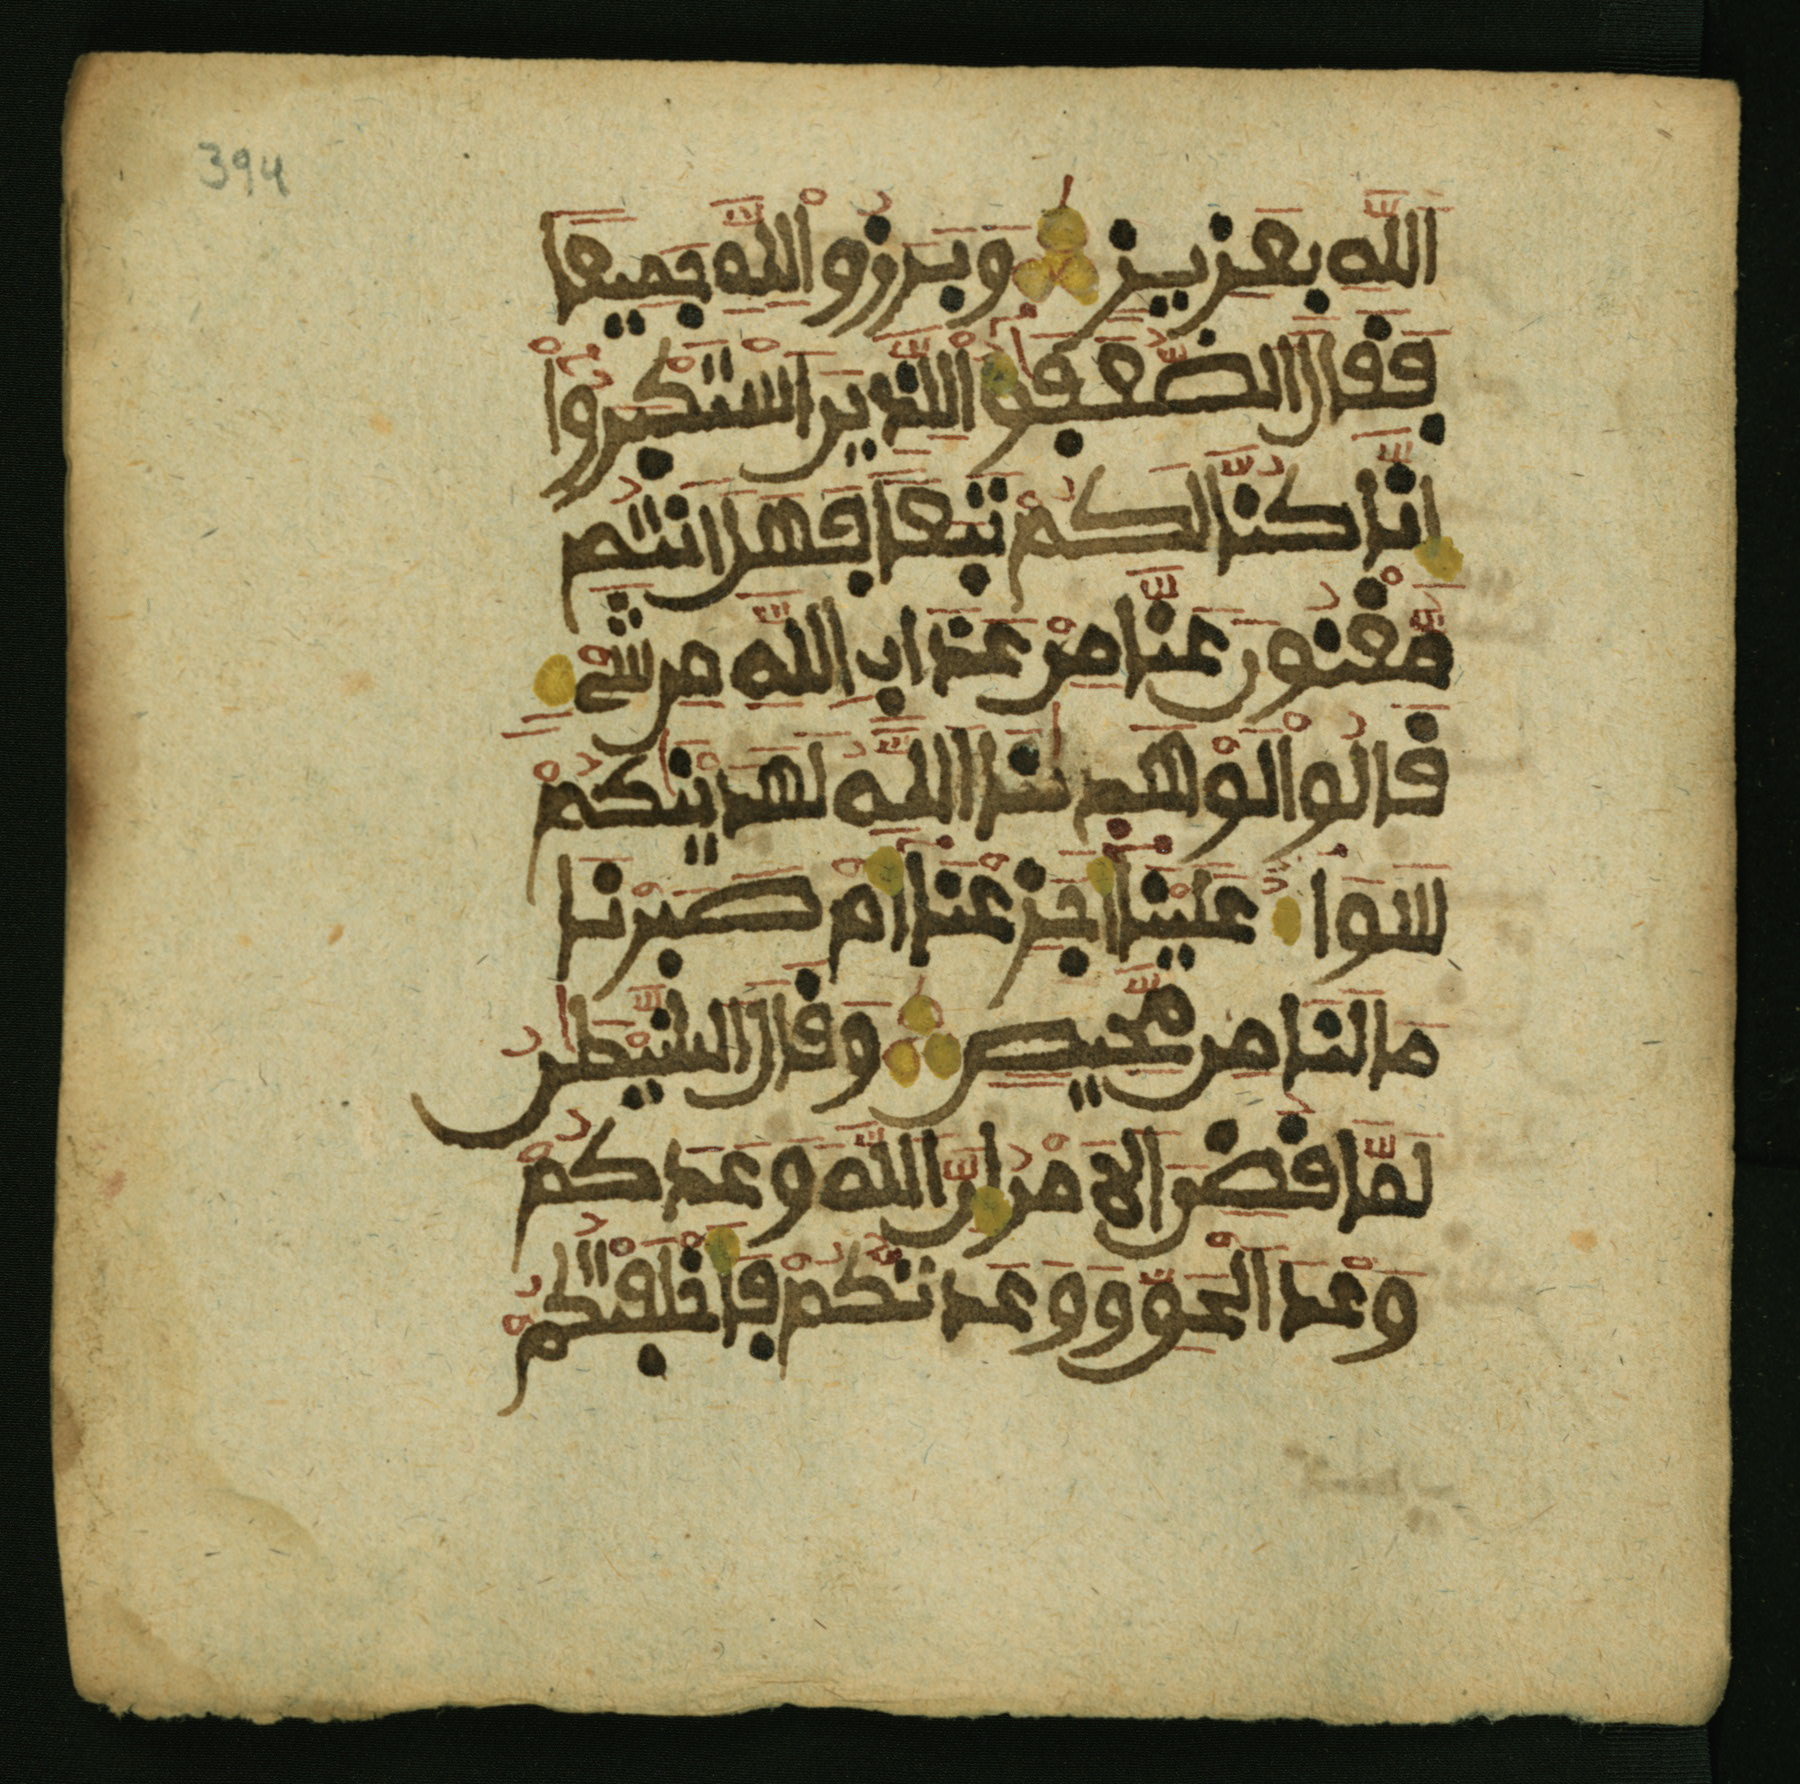 394
الله بعزيز وبرزوا لله جميعا
فقال الضعفؤا للذين استكبروا
انا كنا لكم تبعا فهل انتم
مغنون عنا من عذاب الله من شيء
قالوا لو هدينا الله لهدينكم
سواء علينا أجزعنا أم صبرنا
ما لنا من محيص وقال الشيطن
لما قضي الامر ان الله وعدكم
وعد الحق ووعدتكم فأخلفتكم